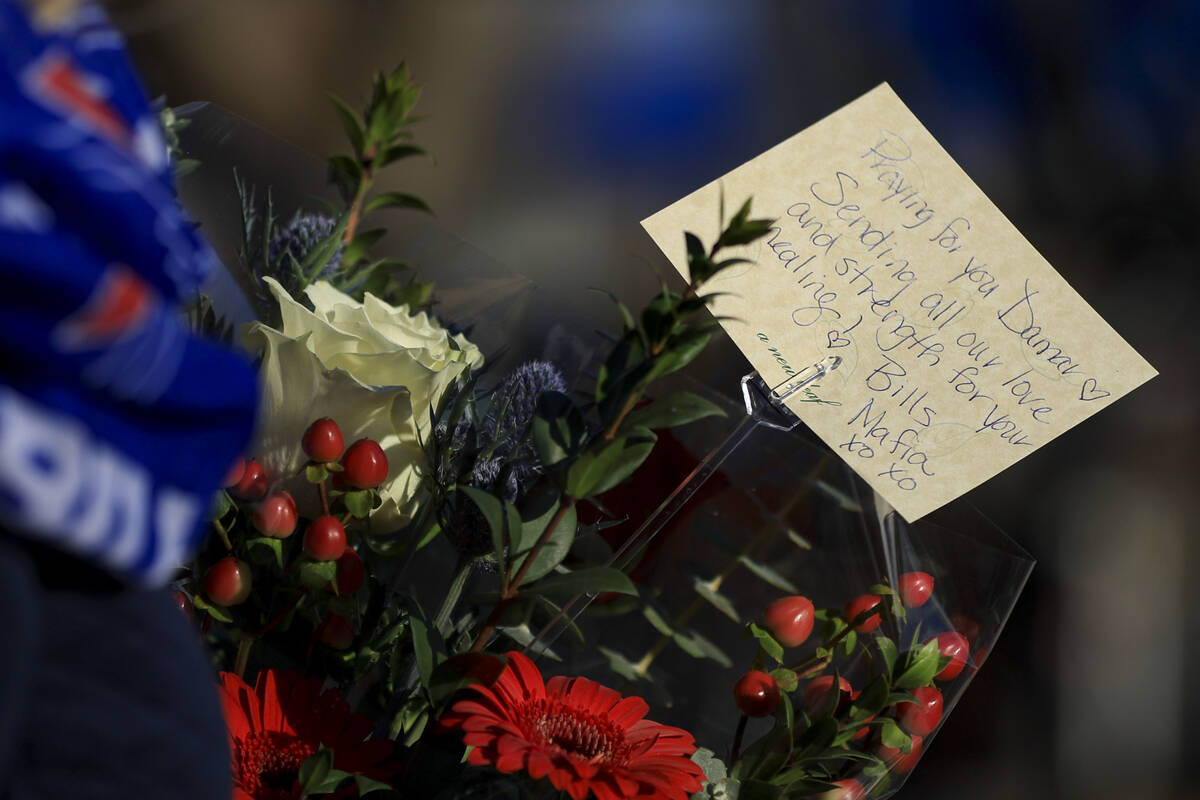 Praying for you Damar ♡
Sending all our love
and strength for your
healing! ♡ Bills
Mafia
xo xo
a new leaf